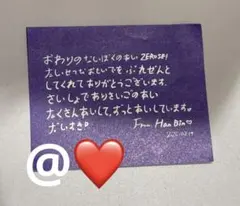 おわりの ないばくのあい ZEROSE1
たいせつな おもいでを ぷれぜんと
してくれて ありがとうございます。
さいしょで ありさいごの あい
たくさんあいして、ずっとあいしています。
だいすき
From Han Bin
@